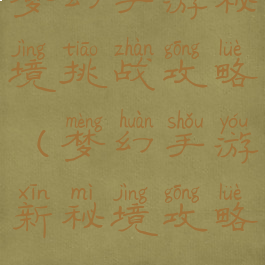 游 秘
jìng tiāo zhàn gōng lüè
境 挑 战 攻 略
mèng huàn shǒu yóu
（ 梦 幻 手 游
xīn mì jìng gōng lüè
新 秘 境 攻 略